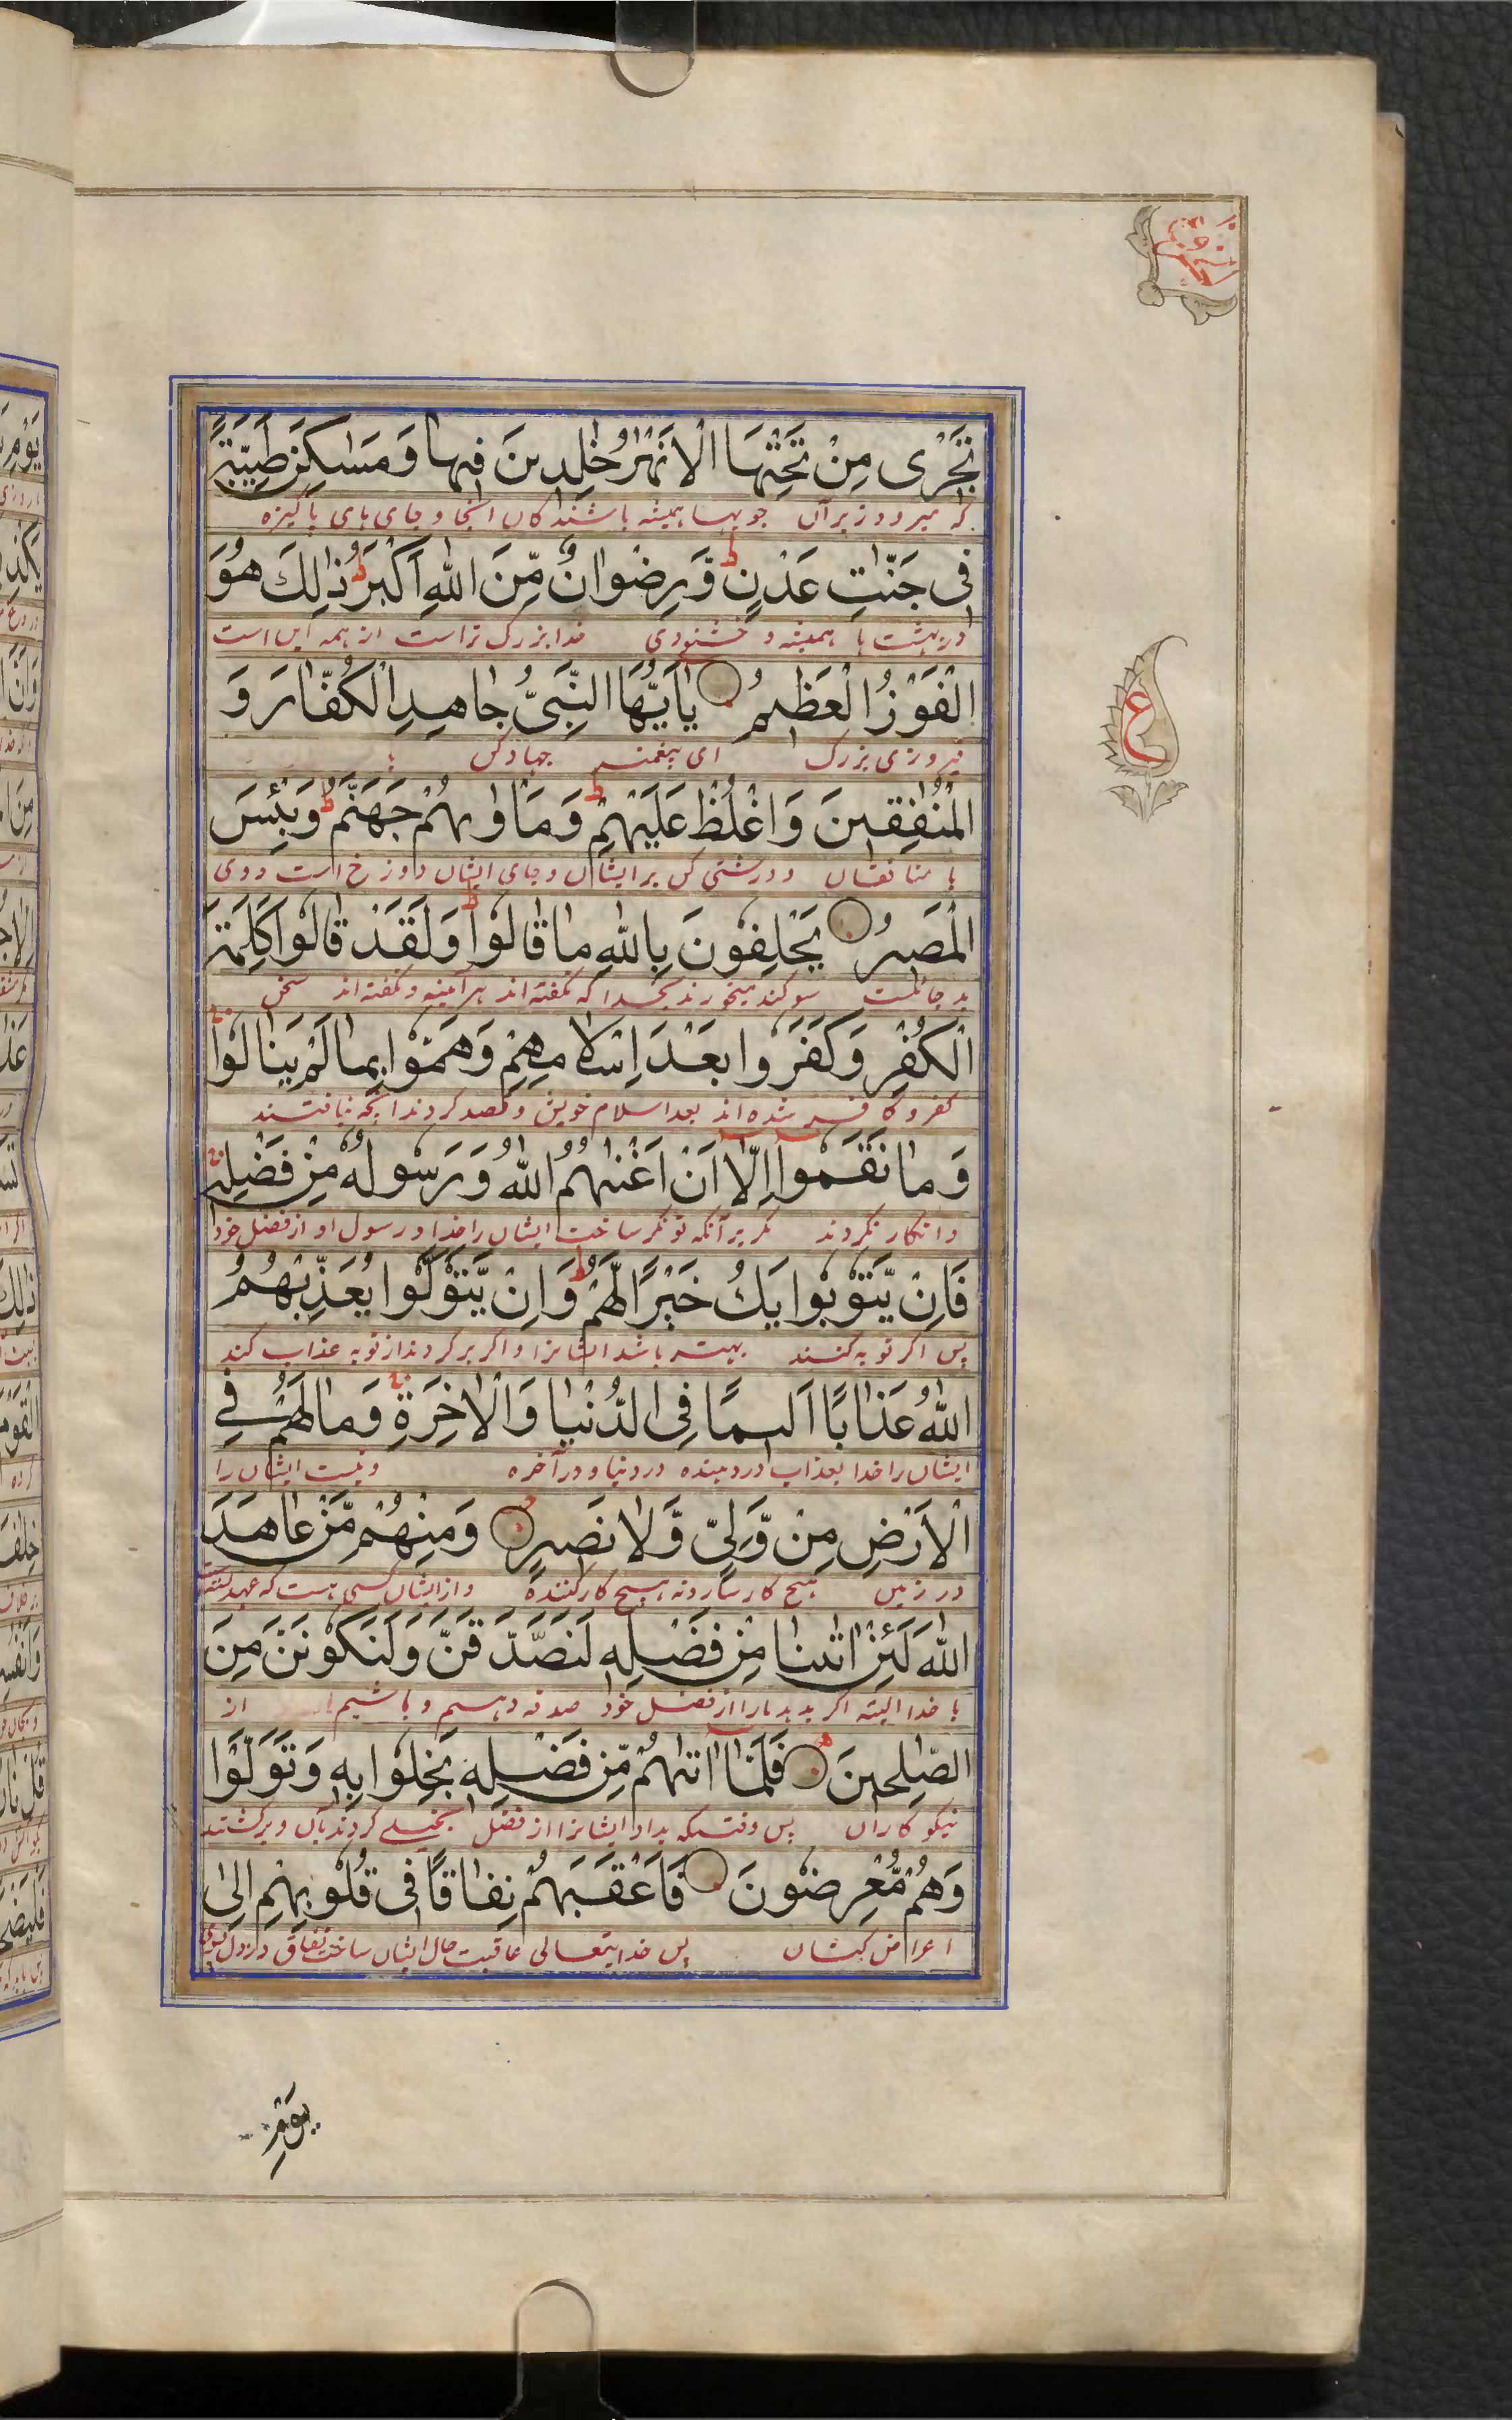 تَجْرٖى مِنْ تَحْتِهَا الْاَنْهٰرُ خٰلِدٖينَ فٖيهٰا وَ مَسٰاكِنَ طَيِّبَةً
که میرود زیر آن جویها همیشه باشندکان انجا و جای های پاکیزه
فٖى جَنّٰاتِ عَدْنٍ ط وَّ رِضْوٰانٌ مِّنَ اللّٰهِ اَكْبَرُ ط ذٰلِكَ هُوَ
در بهشت ها همیشه و خشنودی خدا بزرک تراست از همه این است
الْفَوْزُ الْعَظٖيمُ يٰا اَيُّهَا النَّبِىُّ جٰاهِدِ الْكُفّٰارَ وَ
فیروزی بزرک ای پیغمبر جهاد کن با
الْمُنٰفِقٖينَ وَ اغْلُظْ عَلَيْهِمْ ط وَ مَاْوٰىهُمْ جَهَنَّمُ ط وَ بِئْسَ
با منافقان و درشتی کن بر ایشان و جای ایشان دوزخ است و وی
الْمَصٖيرُ يَحْلِفُونَ بِاللّٰهِ مٰا قٰالُوْا ط وَ لَقَدْ قٰالُوْا كَلِمَةَ
بد جائست سوکند میخورند بخدا که نکفته اند هر آئینه و نکفته اند سخن
الْكُفْرِ وَ كَفَرُوا بَعْدَ اِسْلٰامِهِمْ وَ هَمُّوْا بِمٰا لَمْ يَنٰالُوْا
کفر و کافر شده اند بعد اسلام خویش و قصد کردند انکه نیافتند
وَ مٰا نَقَمُوْا اِلّٰا اَنْ اَغْنٰىهُمُ اللّٰهُ وَ رَسُولُهُ مِنْ فَضْلِهٖ
و انکار نکردند مکر بر آنکه تونکر ساخت ایشان را خدا و رسول او از فضل خود
فَاِنْ يَّتُوْبُوْا يَكُ خَيْرًا لَّهُمْ ط وَ اِنْ يَّتَوَلَّوْا يُعَذِّبْهُمُ
پس اکر توبه کنند بهتر باشد ایشانرا و اکر بر کردند از توبه عذاب کند
اللّٰهُ عَذٰابًا اَلٖيمًا فِى الدُّنْيٰا وَ الْاٰخِرَةِ وَ مٰا لَهُمْ فِى
ایشان را خدا بعذاب درد مینده در دنیا و در آخره و نیست ایشان را
الْاَرْضِ مِنْ وَّلِىٍّ وَّ لٰا نَصٖيرٍ وَ مِنْهُمْ مَّنْ عٰاهَدَ
در زمین هیچ کارساز و نه هیچ کارکننده و از ایشان کسی هست که عهد بسته
اللّٰهَ لَئِنْ اٰتٰىنٰا مِنْ فَضْلِهٖ لَنَصَّدَّقَنَّ وَ لَنَكُوْنَنَّ مِنَ
با خدا البته اکر بدهد ما را از فضل خود صدقه دهیم و باشیم از
الصّٰلِحٖينَ فَلَمّٰا اٰتٰىهُمْ مِّنْ فَضْلِهٖ بَخِلُوْا بِهٖ وَ تَوَلَّوْا
نیکو کاران پس وقتیکه بداد ایشانرا از فضل بخیلی کردند بآن و برکشتند
وَ هُمْ مُّعْرِضُونَ فَاَعْقَبَهُمْ نِفٰاقًا فٖى قُلُوْبِهِمْ اِلٰى
اعراض کنندکان پس خدایتعالی عاقبت حال ایشان ساخت نفاق در دل
ع
يَوْمِ